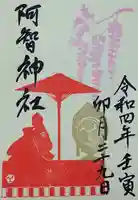 令和四年壬寅
卯月二十九日
阿智神社